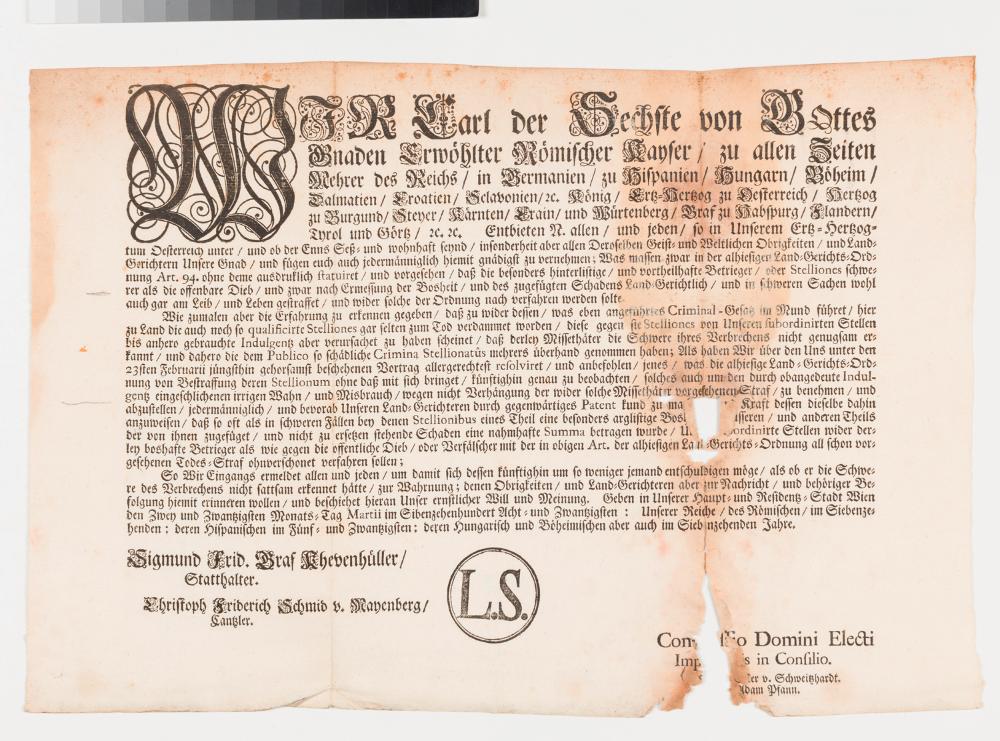 WIR Carl der Sechste von GOttes
Gnaden Erwöhlter Römischer Kayser / zu allen Zeiten
Mehrer des Reichs / in Germanien / zu Hispanien / Hungarn / Böheim /
Dalmatien / Croatien / Sclavonien / ꝛc. König / Ertz-Hertzog zu Oesterreich / Hertzog
zu Burgund / Steyer / Kärnten / Crain / und Würtenberg / Graf zu Habspurg / Flandern /
Tyrol und Görtz / ꝛc. ꝛc. Entbieten N. allen / und jeden / so in Unserem Ertz-Hertzog-
tum Oesterreich unter / und ob der Enns Seß- und wohnhaft seynd / insonderheit aber allen Deroselben Geist- und Weltlichen Obrigkeiten / und Land-
Gerichtern Unsere Gnad / und fügen euch auch jedermänniglich hiemit gnädigst zu vernehmen; Was massen zwar in der alhiesigen Land-Gerichts-Ord-
nung Art. 94. ohne deme ausdruklich statuiret / und vorgesehen / daß die besonders hinterlistige / und vortheilhafte Betrieger / oder Stelliones schwe-
rer als die offenbare Dieb / und zwar nach Ermessung der Bosheit / und des zugefügten Schadens Land-Gerichtlich / und in schweren Sachen wohl
auch gar am Leib / und Leben gestraffet / und wider solche der Ordnung nach verfahren werden solte
Wie zumalen aber die Erfahrung zu erkennen gegeben / daß zu wider dessen / was eben angeführtes Criminal-Gesatz im Mund führet / hier
zu Land die auch noch so qualificirte Stelliones gar selten zum Tod verdammet worden / diese gegen sie Stelliones von Unseren subordinirten Stellen
bis anhero gebrauchte Indulgentz aber verursachet zu haben scheinet / daß derley Missethäter die Schwere ihres Verbrechens nicht genugsam er-
kannt / und dahero die dem Publico so schädliche Crimina Stellionatûs mehrers überhand genommen haben; Als haben Wir über den Uns unter den
23sten Februarii jüngsthin gehorsamst beschehenen Vortrag allergerechtest resolviret / und anbefohlen / jenes / was die alhiesige Land-Gerichts-Ord-
nung von Bestraffung deren Stellionum ohne daß mit sich bringet / künftighin genau zu beobachten / solches auch um den durch obangedeute Indul-
gentz eingeschlichenen irrigen Wahn / und Misbrauch / wegen nicht Verhängung der wider solche Missethäter vorgesehenen Straf / zu benehmen / und
abzustellen / jedermänniglich / und bevorab Unseren Land-Gerichteren durch gegenwärtiges Patent kund zu ma Kraft dessen dieselbe dahin
anzuweisen / daß so oft als in schweren Fällen bey denen Stellionibus eines Theil eine besonders arglistige Bos äusseren / und anderen Theils
der von ihnen zugefüget / und nicht zu ersetzen stehende Schaden eine nahmhafte Summa betragen wurde / U ordinirte Stellen wider der-
ley boshafte Betrieger als wie gegen die offentliche Dieb / oder Verfälscher mit der in obigen Art. der alhiesigen Land-Gerichts-Ordnung all schon vor-
gesehenen Todes-Straf ohnverschonet verfahren sollen;
So Wir Eingangs ermeldet allen und jeden / um damit sich dessen künftighin um so weniger jemand entschuldigen möge / als ob er die Schwe-
re des Verbrechens nicht sattsam erkennet hätte / zur Wahrnung; denen Obrigkeiten / und Land-Gerichteren aber zur Nachricht / und behöriger Be-
folgung hiemit erinneren wollen / und beschiehet hieran Unser ernstlicher Will und Meinung. Geben in Unserer Haupt- und Residentz-Stadt Wien
den Zwey und Zwantzigsten Monats-Tag Martii im Sibenzehenhundert Acht- und Zwantzigsten: Unserer Reiche / des Römischen / im Siebenze-
henden: deren Hispanischen im Fünf- und Zwantzigsten: deren Hungarisch und Böheimischen aber auch im Siebenzehenden Jahre.
Sigmund Frid. Graf Khevenhüller /
Statthalter.
Christoph Friderich Schmid v. Mayenberg /
Cantzler.
L.S.
Com ssio Domini Electi
Imp is in Consilio.
v. Schweitzhardt.
Adam Pfann.